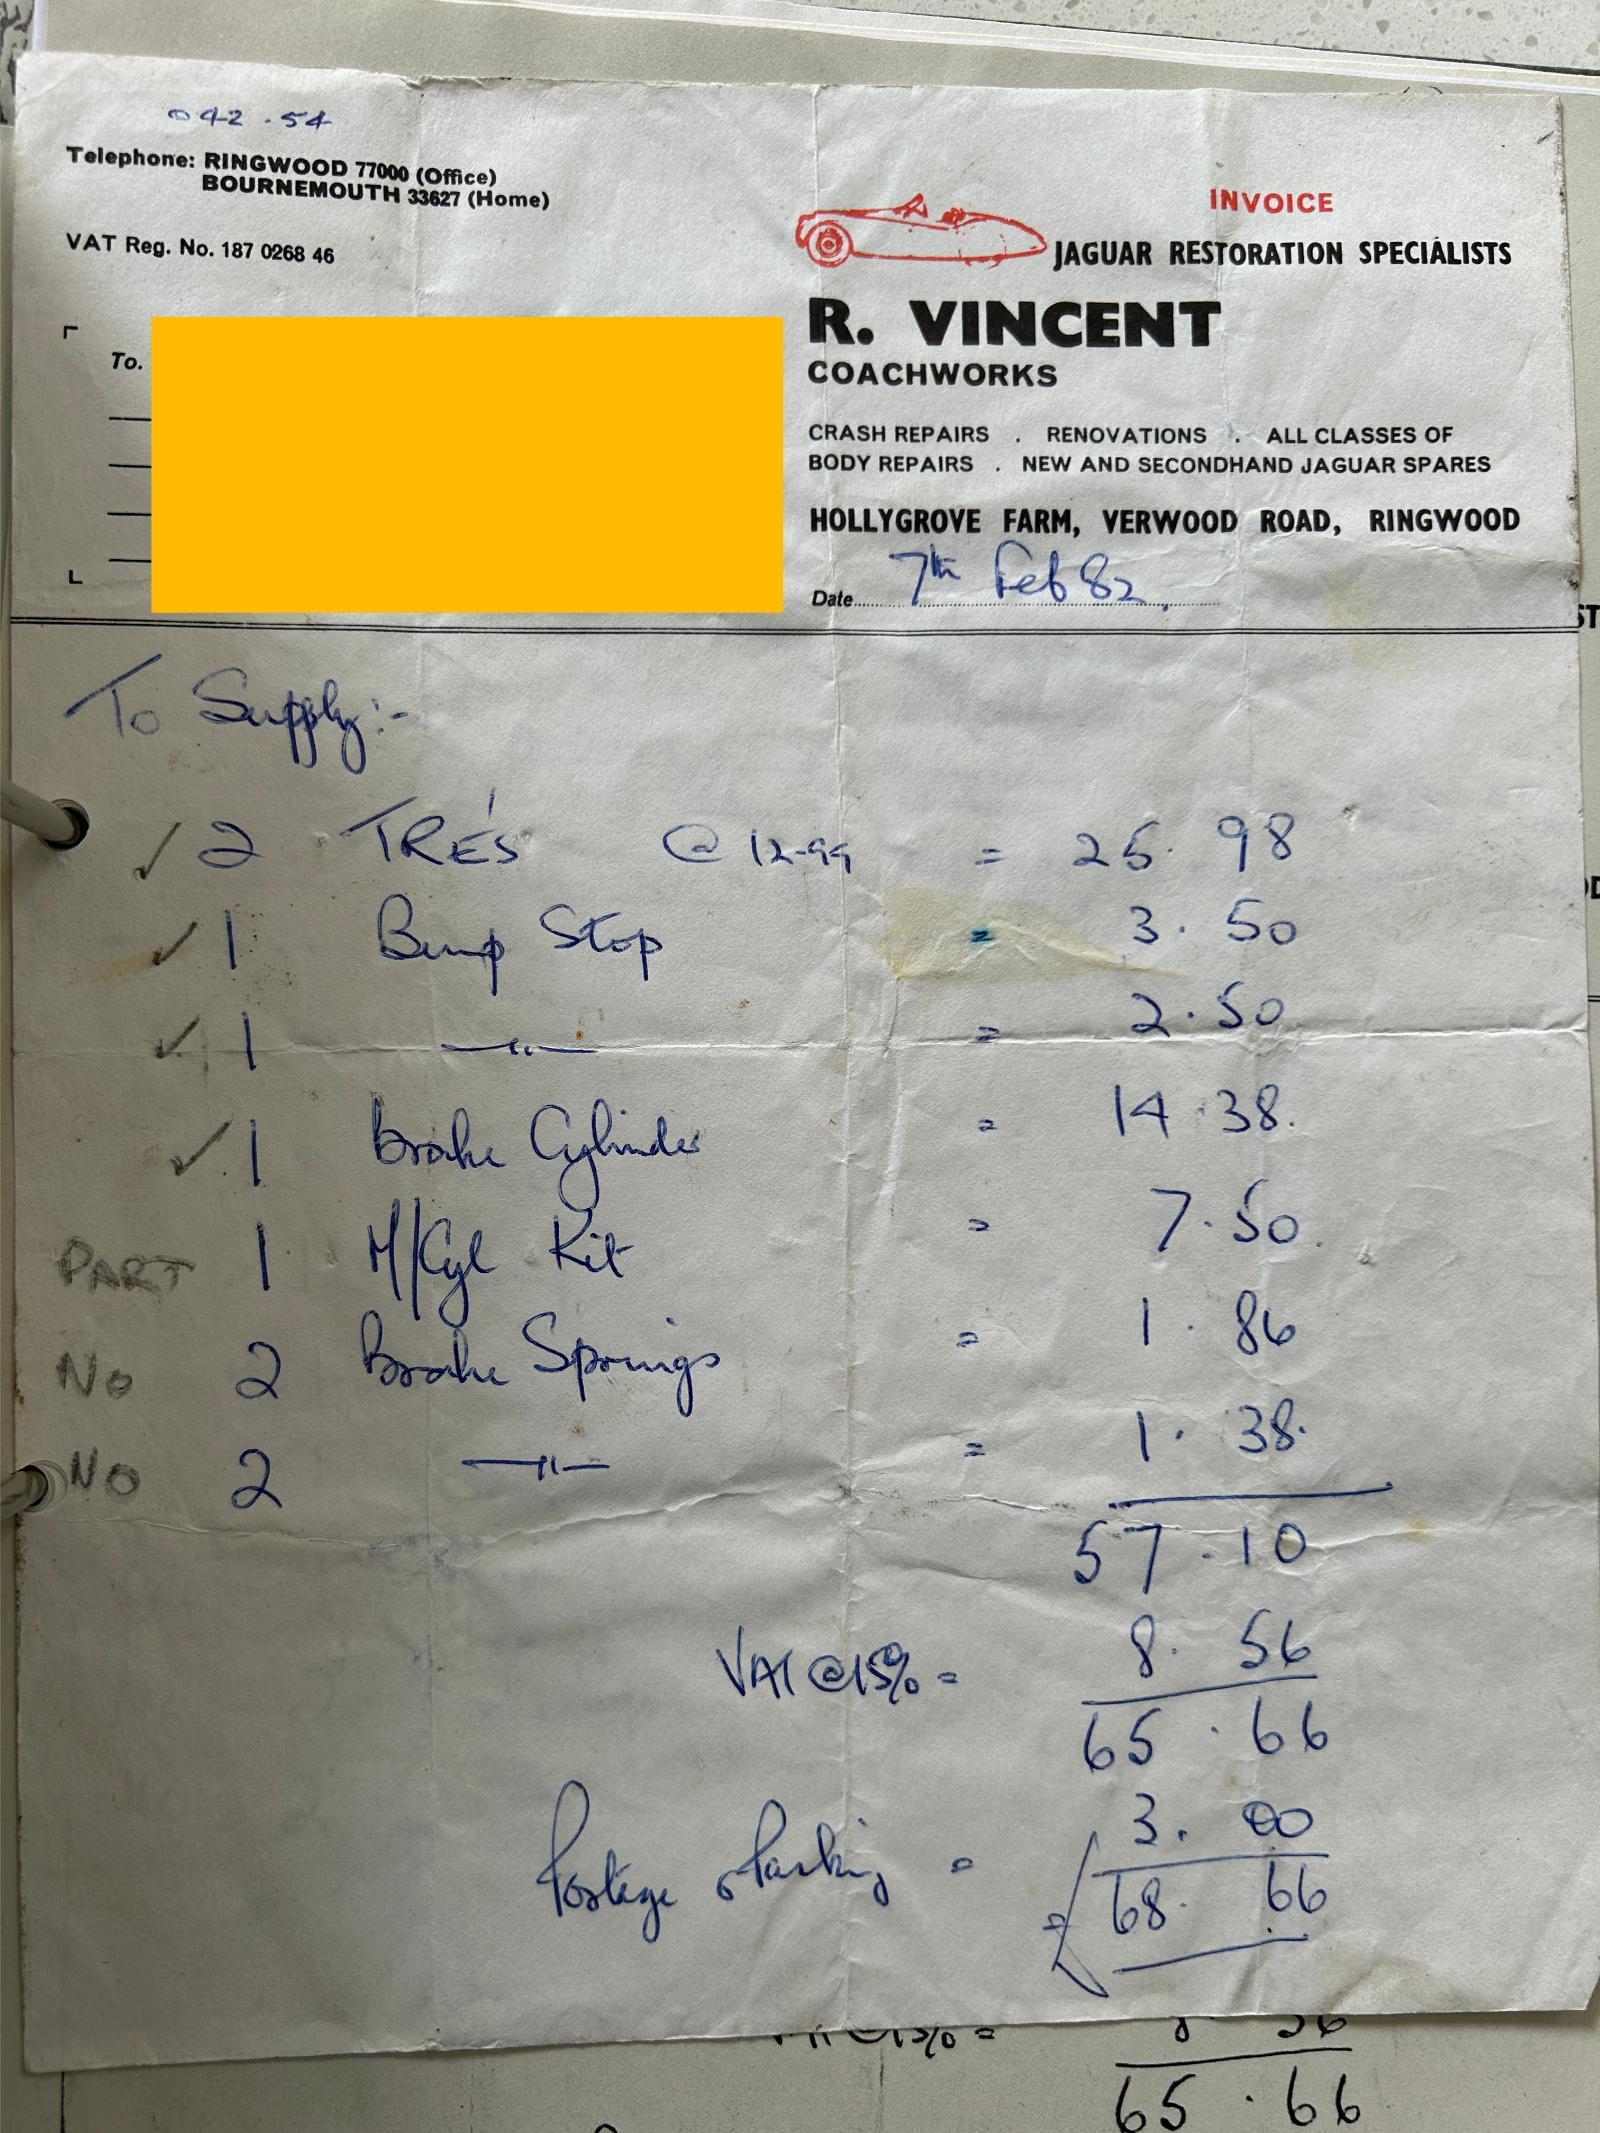 042.54
Telephone: RINGWOOD 77000 (Office)
BOURNEMOUTH 33627 (Home)
VAT Reg. No. 187 0268 46
INVOICE
JAGUAR RESTORATION SPECIALISTS
R. VINCENT
COACHWORKS
CRASH REPAIRS . RENOVATIONS . ALL CLASSES OF
BODY REPAIRS . NEW AND SECONDHAND JAGUAR SPARES
HOLLYGROVE FARM, VERWOOD ROAD, RINGWOOD
To.
Date 7th Feb 82.
To Supply:-
✓ 2 TRE'S @ 12-99 = 25.98
✓ 1 Bump Stop = 3.50
✓ 1 —"— = 2.50
✓ 1 Brake Cylinder = 14.38.
PART 1 M/Cyl Kit = 7.50.
No 2 Brake Springs = 1.86
No 2 —"— = 1.38.
57.10
VAT @ 15% = 8.56
65.66
Postage & Packing = 3.00
= £68.66
@15% = 8 56
65.66